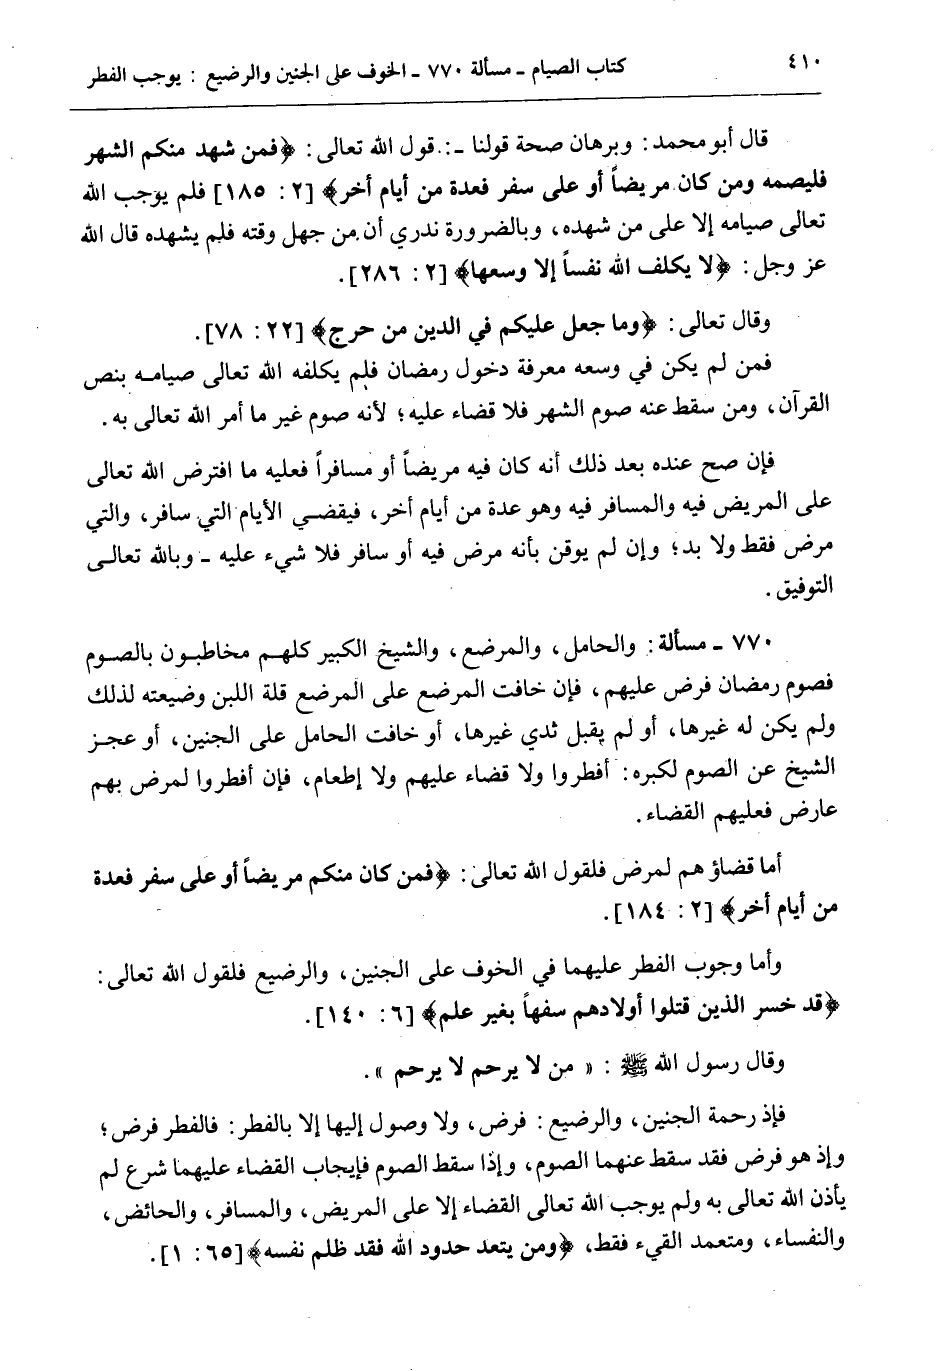 ٤١٠
كتاب الصيام ـ مسألة ٧٧٠ ـ الخوف على الجنين والرضيع : يوجب الفطر
قال أبو محمد: وبرهان صحة قولنا ـ: قول الله تعالى: ﴿فمن شهد منكم الشهر
فليصمه ومن كان مريضاً أو على سفر فعدة من أيام أخر﴾ [٢ : ١٨٥] فلم يوجب الله
تعالى صيامه إلا على من شهده، وبالضرورة ندري أن من جهل وقته فلم يشهده قال الله
عز وجل: ﴿لا يكلف الله نفساً إلا وسعها﴾ [٢ : ٢٨٦].
وقال تعالى: ﴿وما جعل عليكم في الدين من حرج﴾ [٢٢ : ٧٨].
فمن لم يكن في وسعه معرفة دخول رمضان فلم يكلفه الله تعالى صيامه بنص
القرآن، ومن سقط عنه صوم الشهر فلا قضاء عليه؛ لأنه صوم غير ما أمر الله تعالى به.
فإن صح عنده بعد ذلك أنه كان فيه مريضاً أو مسافراً فعليه ما افترض الله تعالى
على المريض فيه والمسافر فيه وهو عدة من أيام أخر، فيقضي الأيام التي سافر، والتي
مرض فقط ولا بد؛ وإن لم يوقن بأنه مرض فيه أو سافر فلا شيء عليه ـ وبالله تعالى
التوفيق.
٧٧٠ ـ مسألة: والحامل، والمرضع، والشيخ الكبير كلهم مخاطبون بالصوم
فصوم رمضان فرض عليهم، فإن خافت المرضع على المرضع قلة اللبن وضيعته لذلك
ولم يكن له غيرها، أو لم يقبل ثدي غيرها، أو خافت الحامل على الجنين، أو عجز
الشيخ عن الصوم لكبره: أفطروا ولا قضاء عليهم ولا إطعام، فإن أفطروا لمرض بهم
عارض فعليهم القضاء.
أما قضاؤهم لمرض فلقول الله تعالى: ﴿فمن كان منكم مريضاً أو على سفر فعدة
من أيام أخر﴾ [٢ : ١٨٤].
وأما وجوب الفطر عليهما في الخوف على الجنين، والرضيع فلقول الله تعالى:
﴿قد خسر الذين قتلوا أولادهم سفهاً بغير علم﴾ [٦ : ١٤٠].
وقال رسول الله ﷺ : « من لا يرحم لا يرحم ».
فإذ رحمة الجنين، والرضيع: فرض، ولا وصول إليها إلا بالفطر: فالفطر فرض؛
وإذ هو فرض فقد سقط عنهما الصوم، وإذا سقط الصوم فإيجاب القضاء عليهما شرع لم
يأذن الله تعالى به ولم يوجب الله تعالى القضاء إلا على المريض، والمسافر، والحائض،
والنفساء، ومتعمد القيء فقط، ﴿ومن يتعد حدود الله فقد ظلم نفسه﴾ [٦٥ : ١].